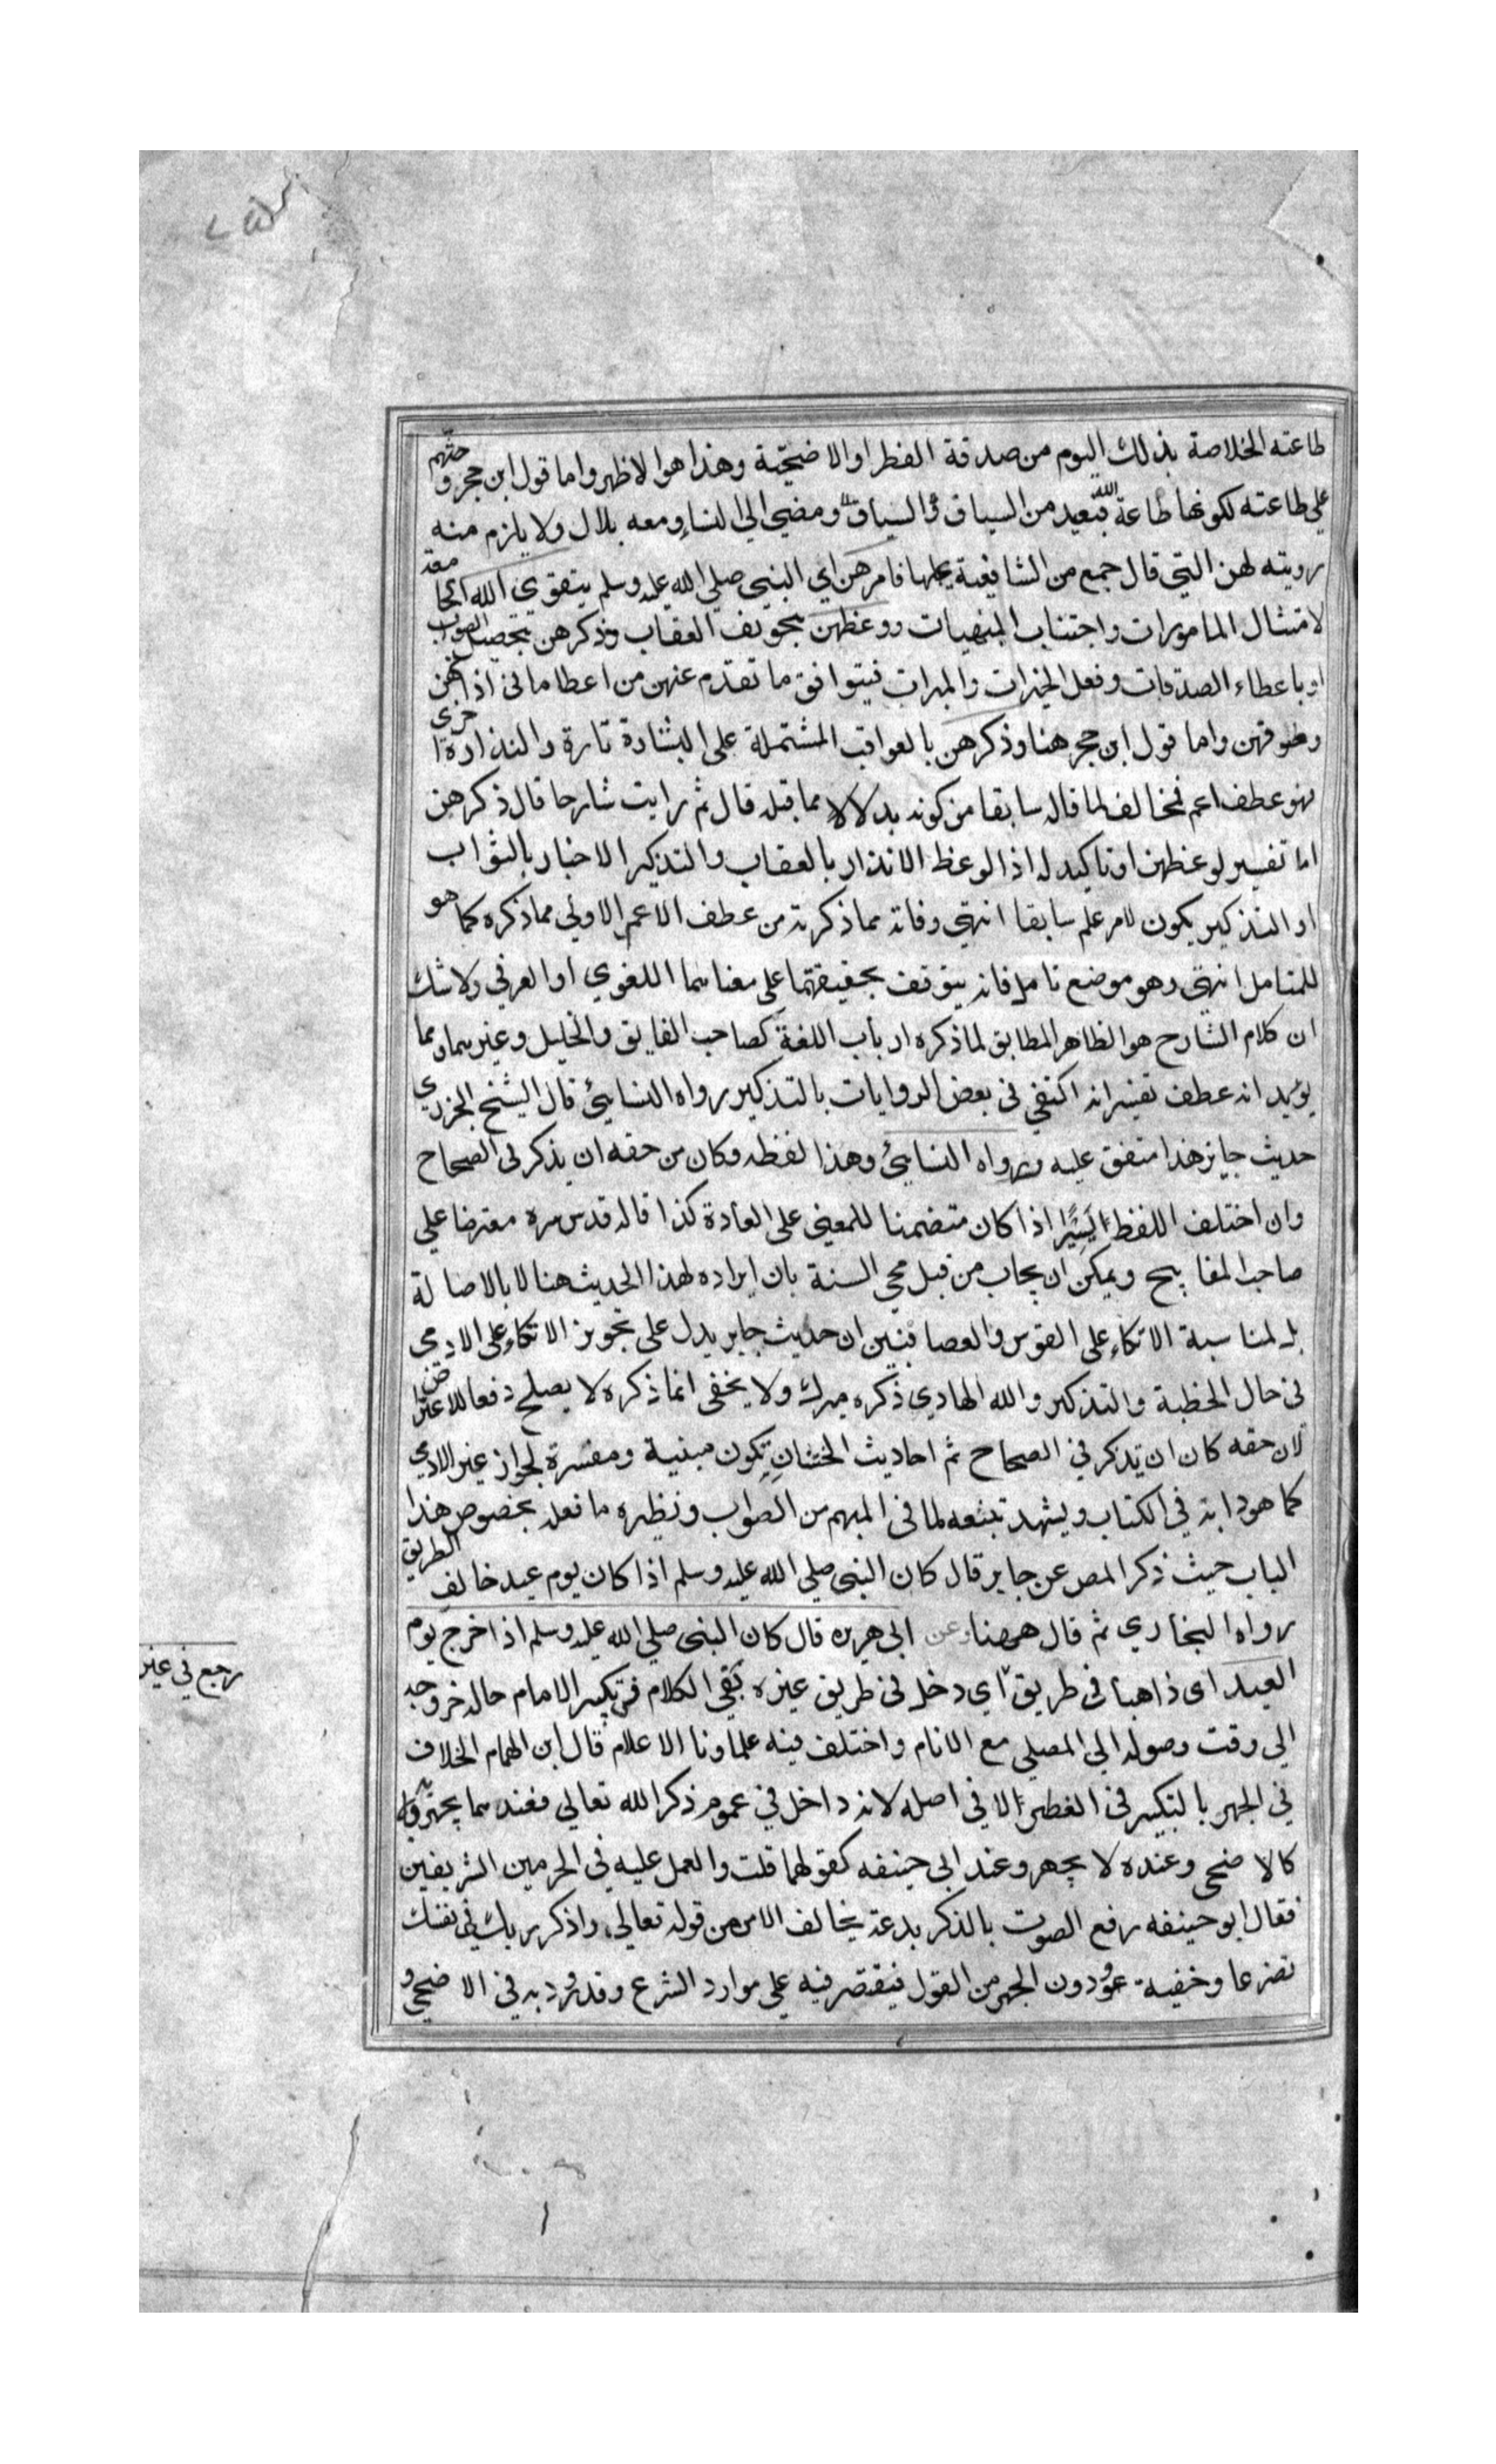 طاعته الخلاصة بذلك اليوم من صدقة الفطر او الاضحية وهذا هو الاظهر واما قول ابن حجر وحثهم
على طاعته لكونها طاعة الله فبعيد من السياق والسباق ومضي الى النساء ومعه بلال ولا يلزم منه
رويته لهن التي قال جمع من الشافعية بحلها فامرهن اي النبي صلي الله عليه وسلم بتقوي الله الجامعة
لامتثال المامورات واجتناب المنهيات ووعظهن بتخويف العقاب وذكرهن بتحصيل الثواب
او باعطاء الصدقات وفعل الخيرات والمبرات فيتوافق ما تقدم عنهن من اعطا ما في اذانهن
وحلوقهن واما قول ابن حجر هنا وذكرهن بالعواقب المشتملة على البشارة تارة والنذارة اخرى
فهو عطف اعم فمخالف لما قاله سابقا من كونه بدلا مما قبله قال ثم رايت شارحا قال ذكرهن
اما تفسير لوعظهن او تاكيد له اذ الوعظ الانذار بالعقاب والتذكير الاخبار بالثواب
او التذكير يكون لامر علم سابقا انتهى وفاته مما ذكرته من عطف الاعم الاولي مما ذكره كما هو
للمتامل انتهى وهو موضع تامل فانه يتوقف بحقيقتهما على معناهما اللغوي او العرفي ولا شك
ان كلام الشارح هو الظاهر المطابق لما ذكره ارباب اللغة كصاحب الفايق والخليل وغيرهما ومما
يويد انه عطف تفسير انه اكتفي في بعض الروايات بالتذكير رواه النسائي قال الشيخ الجزري
حديث جابر هذا متفق عليه ورواه النسائي وهذا لفظه وكان من حقه ان يذكر في الصحاح
وان اختلف اللفظ يسيرا اذا كان متضمنا للمعنى على العادة كذا قاله قدس سره معترضا علي
صاحب المفاتيح ويمكن ان يجاب من قبل محي السنة بان ايراده لهذا الحديث هنا لا بالاصالة
بل لمناسبة الاتكاء على القوس والعصا فتبين ان حديث جابر يدل على تجويز الاتكاء على الادمي
في حال الخطبة والتذكير والله الهادي ذكره ميرك ولا يخفى انما ذكره لا يصلح دفعا للاعتراض
لان حقه كان ان يذكر في الصحاح ثم احاديث الحسان تكون مبنية ومفسرة لجواز غير الادمي
كما هو دابه في الكتاب ويشهد تتبعه لما في المبهم من الصواب ونظيره ما فعله بخصوص هذا
الباب حيث ذكر المص عن جابر قال كان النبي صلي الله عليه وسلم اذا كان يوم عيد خالف الطريق
رواه البخاري ثم قال ههنا وعن ابي هريره قال كان النبي صلي الله عليه وسلم اذا خرج يوم
العيد اى ذاهبا في طريق اي دخل في طريق غيره بقي الكلام في تكبير الامام حال خروجه
رجع في غير
الي وقت وصوله الي المصلي مع الانام واختلف فيه علماونا الاعلام قال ابن الهمام الخلاف
في الجهر بالتكبير في الفطر لا في اصله لانه داخل في عموم ذكر الله تعالي فعندهما يجهر به
كالاضحى وعنده لا يجهر وعند ابي حنيفه كقولهما قلت والعمل عليه في الحرمين الشريفين
فقال ابو حنيفه رفع الصوت بالذكر بدعة يخالف الامر من قوله تعالي واذكر ربك في نفسك
تضرعا وخفية ودون الجهر من القول فيقتصر فيه على موارد الشرع وقد ورد به في الاضحى و